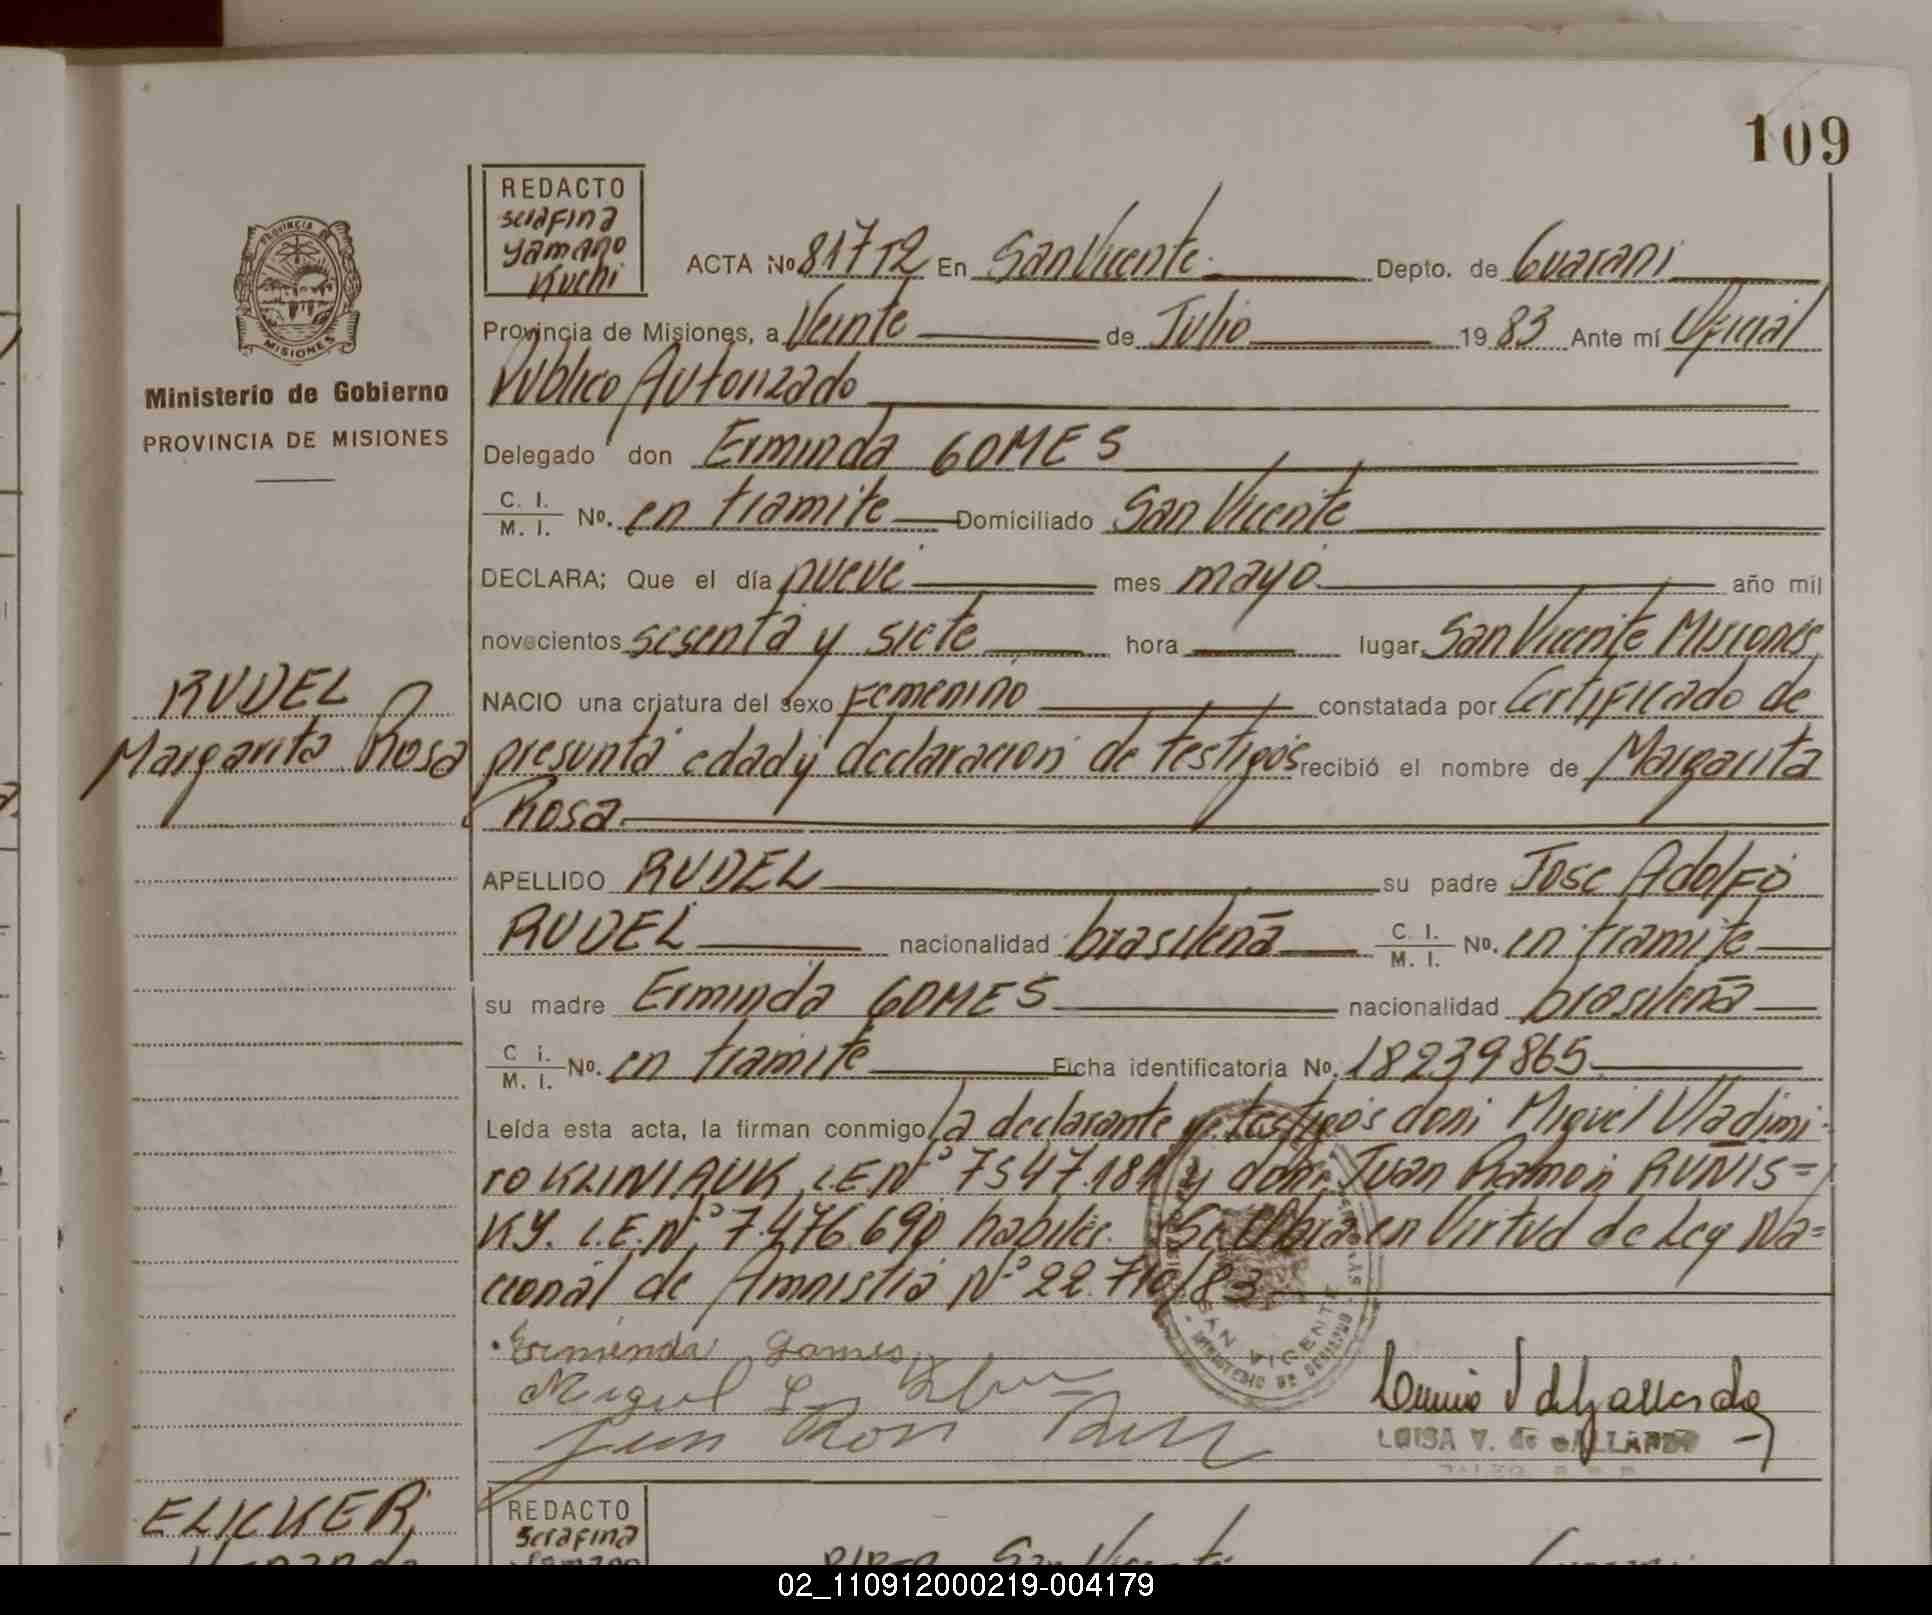 109
PROVINCIA
MISIONES
Ministerio de Gobierno
PROVINCIA DE MISIONES
RUDEL
Margarita Rosa
REDACTO
Serafina
Yamano
Kuchi
ACTA No 81712 En San Vicente Depto. de Guarani
Provincia de Misiones, a Veinte de Julio 1983 Ante mí Oficial
Publico Autorizado
Delegado don Erminda GOMES
C. I. / M. I. No. en tramite Domiciliado San Vicente
DECLARA; Que el día nueve mes mayo año mil
novecientos sesenta y siete hora lugar San Vicente Misiones
NACIO una criatura del sexo Femenino constatada por Certificado de
presunta edad y declaracion de testigos recibió el nombre de Margarita
Rosa
APELLIDO RUDEL su padre Jose Adolfo
RUDEL nacionalidad brasileña C. I. / M. I. No. en tramite
su madre Erminda GOMES nacionalidad brasileña
C i. / M. I. No. en tramite Ficha identificatoria No. 18239865
Leída esta acta, la firman conmigo la declarante y testigos don: Miguel Vladimi-
ro KLINIAUK, L.E.Nº 7547.181 y don: Juan Ramon RUNIS=
KY. L.E.Nº 7.476.690 habiles. Se labra en Virtud de Ley Na=
cional de Amnistia Nº 22.710/83
Erminda Gomes
Miguel
Juan Ron
SAN VICENTE
LUISA V. de GALLARDO
ELICKER
REDACTO
Serafina
San Vicente
02_110912000219-004179